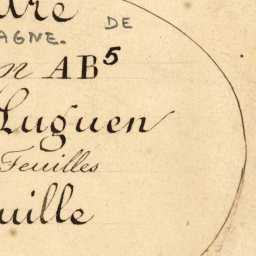 ure
DE
AGNE.
n AB5
Luguen
Feuilles
uille